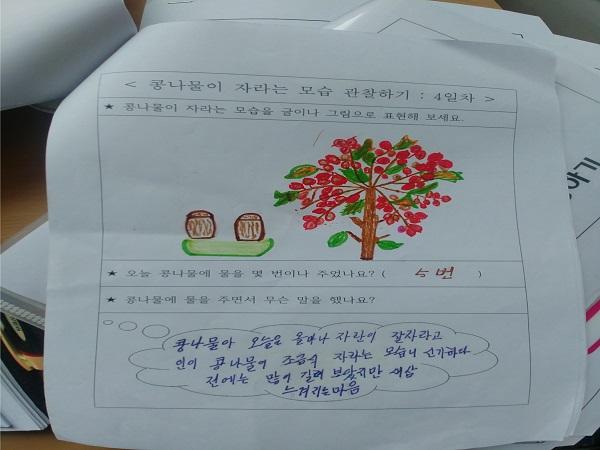 < 콩나물이 자라는 모습 관찰하기 : 4일차 >
★ 콩나물이 자라는 모습을 글이나 그림으로 표현해 보세요.
★ 오늘 콩나물에 물을 몇 번이나 주었나요? ( 5번 )
★ 콩나물에 물을 주면서 무슨 말을 했나요?
콩나물아 오늘은 얼마나 자란이 잘자라고
인이 콩나물이 조금식 자라는 모습니 신기하다
전에는 많이 길러 보았지만 새삼
느껴지는마음